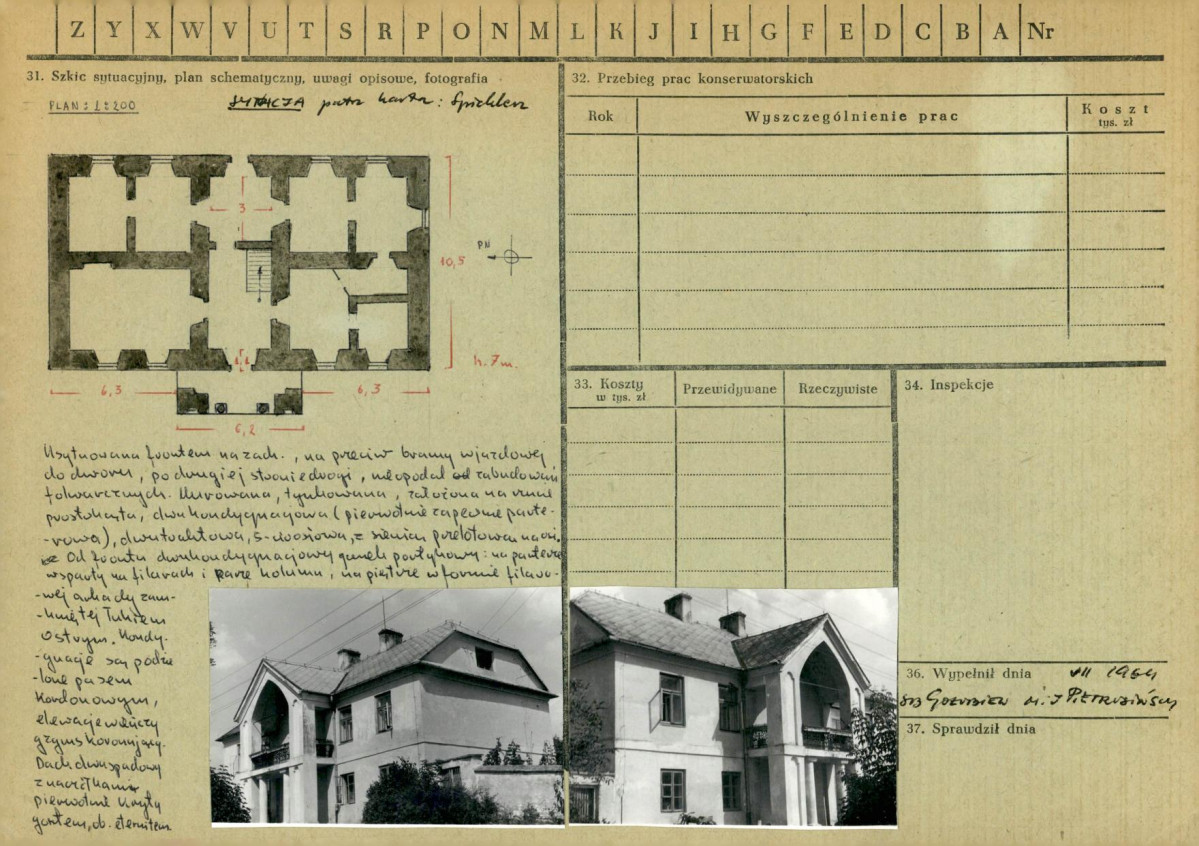 Z Y X W V U T S R P O N M L K J I H G F E D C B A Nr
31. Szkic sytuacyjny, plan schematyczny, uwagi opisowe, fotografia
PLAN : 1:200
SYTUACJA patrz karta: Spichlerz
3
PN
10,5
h. 7 m.
6,3
6,3
6,2
Usytuowana frontem na zach., na przeciw bramy wjazdowej
do dworu, po drugiej stronie drogi, nieopodal od zabudowań
folwarcznych. Murowana, tynkowana, założona na rzucie
prostokąta, dwukondygnacjowa (pierwotnie zapewne parte-
-rowa), dwutraktowa, 5-osiowa, z sienią przelotową na osi.
Od frontu dwukondygnacjowy ganek portykowy: na parterze
wsparty na filarach i parze kolumn, na piętrze w formie filaro-
-wej arkady zam-
-kniętej łukiem
ostrym. Kondy-
-gnacje są podzie
-lone pasem
kordonowym,
elewacje wieńczy
gzyms koronujący.
Dach dwuspadowy
z naczółkami
pierwotnie kryty
gontem, ob. eternitem.
32. Przebieg prac konserwatorskich
Rok
Wyszczególnienie prac
Koszt
tys. zł
33. Koszty
w tys. zł
Przewidywane
Rzeczywiste
34. Inspekcje
36. Wypełnił dnia
37. Sprawdził dnia